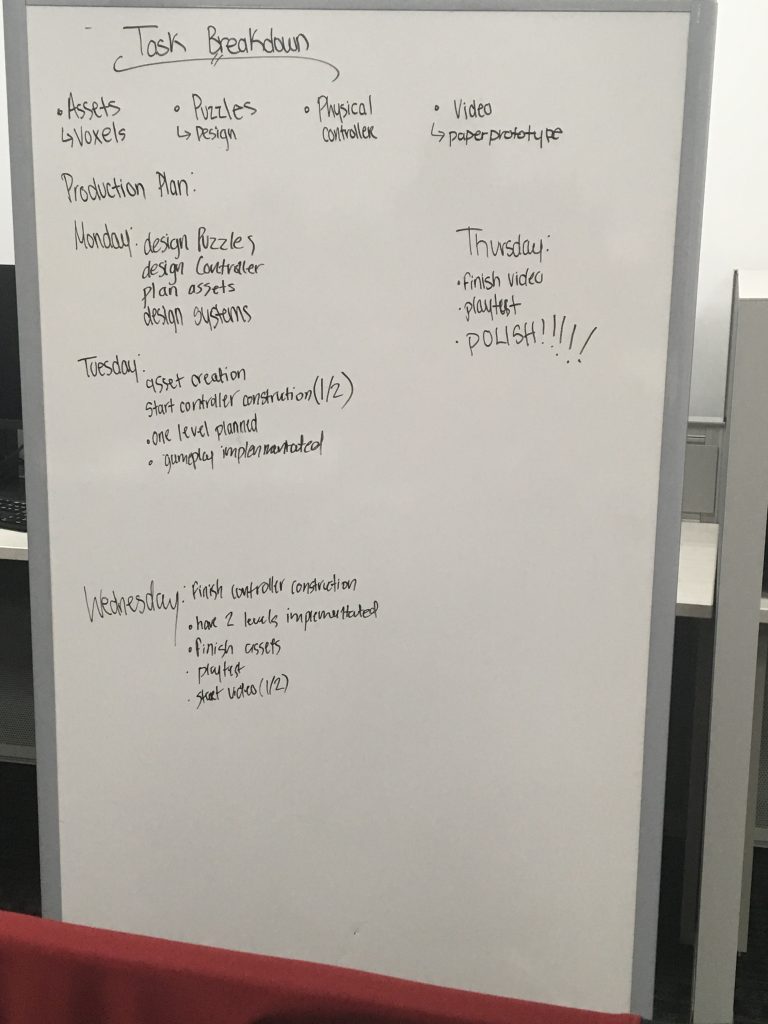 Task Breakdown
• Assets
↳ Voxels
• Puzzles
↳ Design
• Physical
controller
• Video
↳ paper prototype
Production Plan:
Monday: design Puzzles
design Controller
plan assets
design systems
Tuesday: asset creation
start controller constrution (1/2)
• one level planned
• gameplay implenmentated
Wednesday: finish controller construction
• have 2 levels implementated
• finish assets
• playtest
• start video (1/2)
Thursday:
• finish video
• playtest
• POLISH!!!!!!